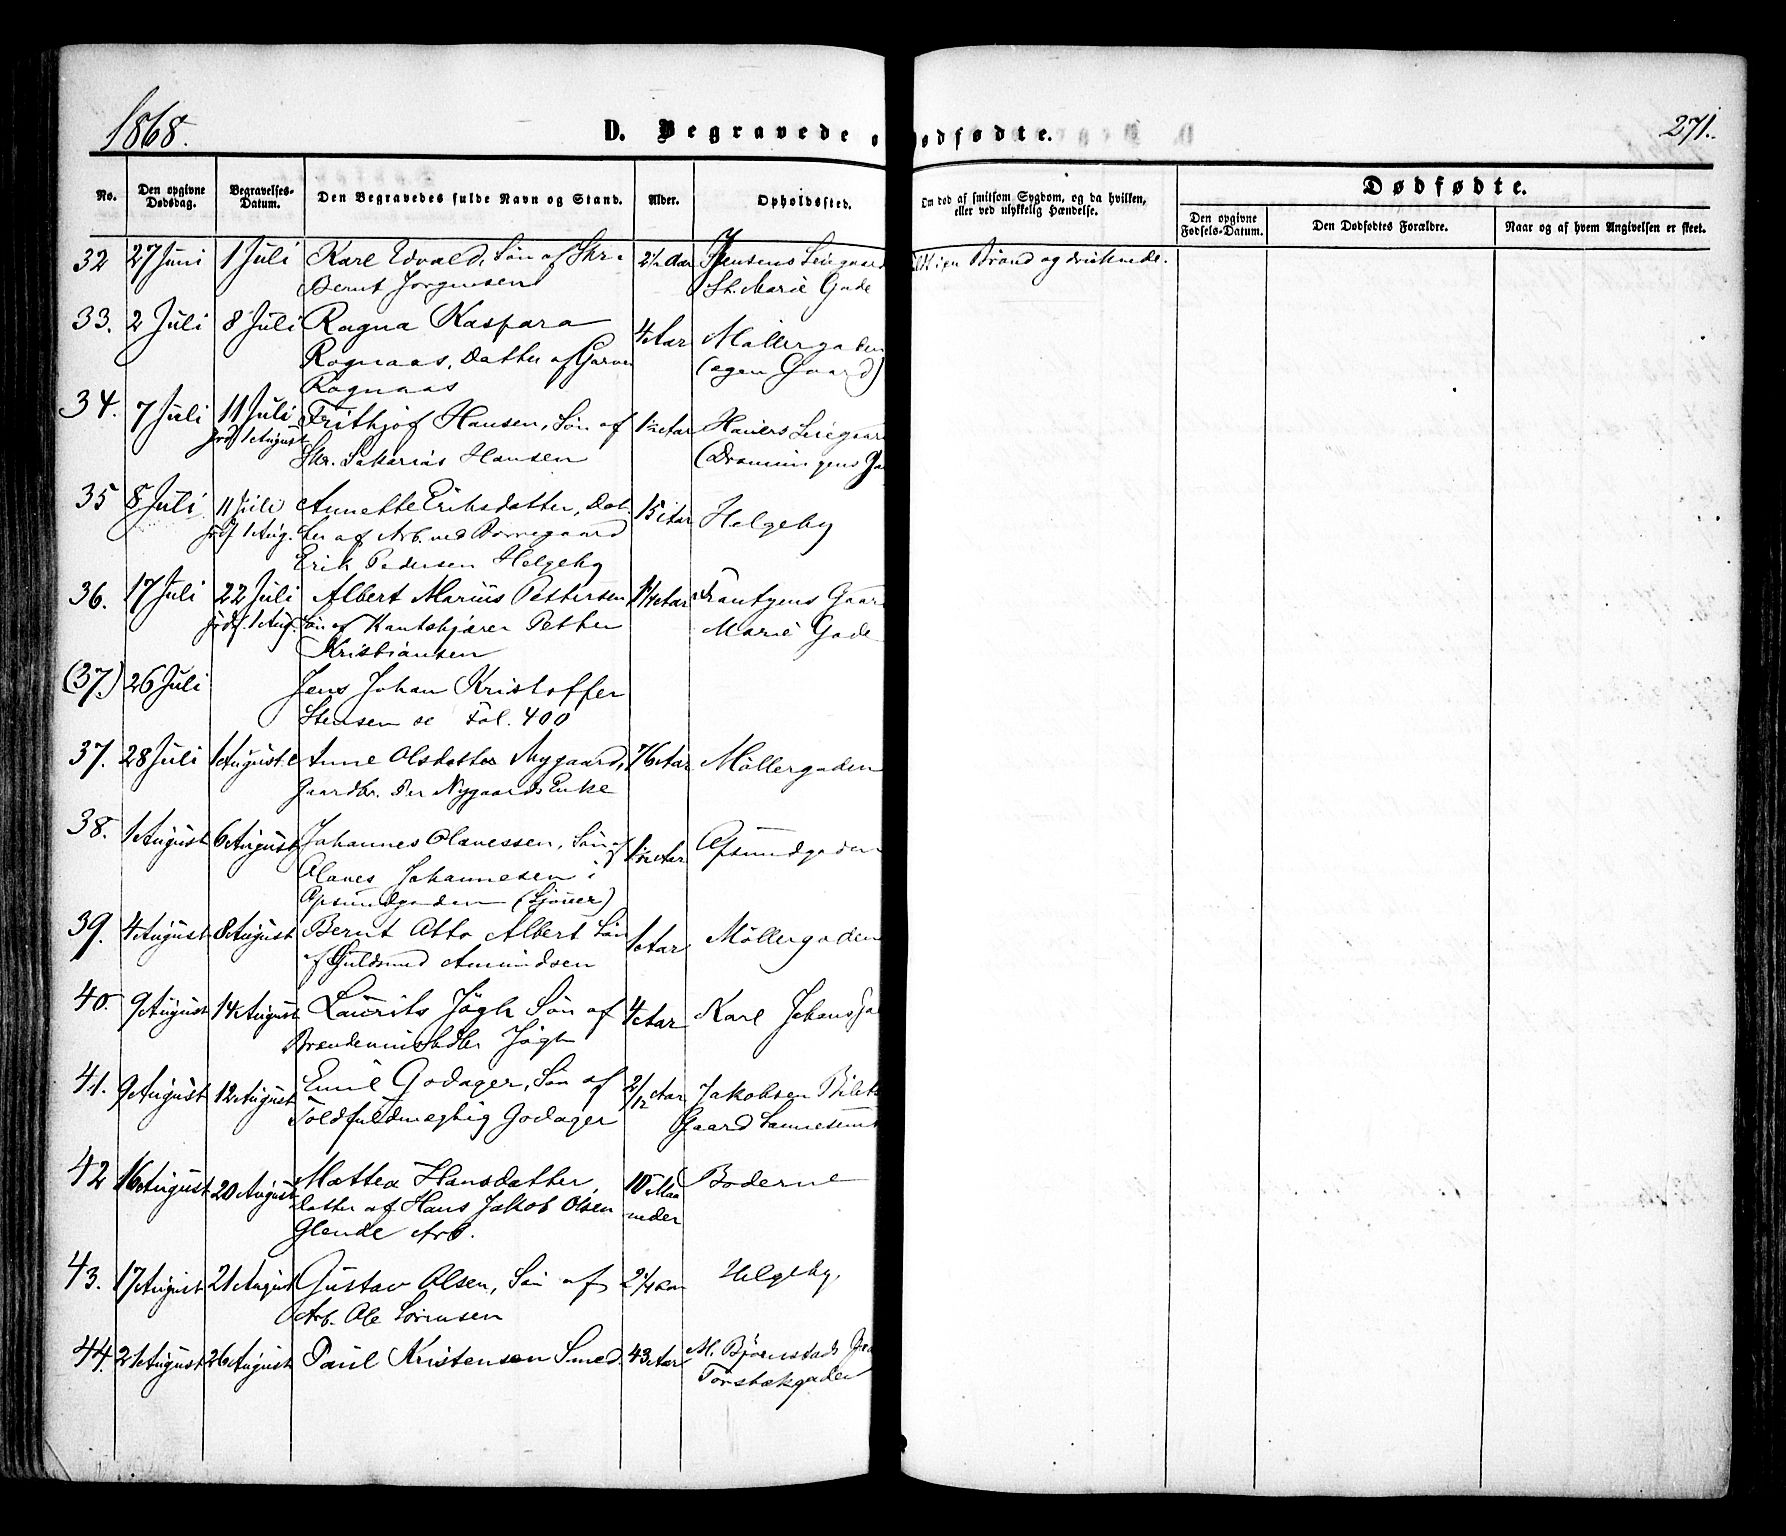 1868.
D. Begravede o
ødfødte.
271.
No.
Den opgivne Dødsdag.
Begravelses-Datum.
Den Begravedes fulde Navn og Stand.
Alder.
Opholdssted.
Om død af smitsom Sygdom, og da hvilken,
eller ved ulykkelig Hændelse.
Dødfødte.
Den opgivne Fødsels-Datum.
Den Dødfødtes Forældre.
Naar og af hvem Angivelsen er skeet.
32 27 Juni 1 Juli Karl Edvald, Søn af Skr. 2½ Aar Jensens Leiegaard i en Brønd og druknede.
Bernt Jorgensen St. Marie Gade
33. 2 Juli 8 Juli Ragna Kaspara 4 Aar Møllergaden
Rognaas, Datter af Garver (egen Gaard)
Rognaas
34. 7 Juli 11 Juli Frithjof Hansen, Søn af 1½ Aar Leiegaar
jordf 1 August Skr. Sakarias Hansen (Dronningens Ga
35 8 Juli 11 Juli Annette Eriksdatter, Dat- 15 Aar Helgeby
jordf 1 Aug. ter af Arb. ved Borregaard
Erik Pedersen Helgeby
36. 17 Juli 22 Juli Albert Marius Pettersen 1¼ Aar Frantzens Gaar
jordf 1 Aug. Søn af Petter Marie Gade
Kristiansen
(37.) 26 Juli Jens Johan Kristoffer
Stensen se Fol. 400
37. 28 Juli 1 August Anne Olsdatter Nygaard, 76 Aar Møllergaden
Gaardbr. Per Nygaards Enke
38. 1 August 6 August Johannes Olavessen, Søn af 1½ Aar Apsundgaden
Olaves Johannesen i
Apsundgaden (Sjouer)
39. 4 August 8 August Bernt Otto Albert Søn 1 Aar Møllergaden
af Guldsmed Amundsen
40. 9 August 14 August Laurits Jøgh Søn af 4 Aar Karl Johans Ga
Jøgh
41. 9 August 12 August Emil Godager, Søn af 2/12 Aar Jakobsen
Toldfuldmægtig Godager Gaard Sannesund
42 16 August 20 August Mattea Hansdatter 10 Maa Boderne
Datter af Hans Jakob Olsen neder
Glende Arb.
43. 17 August 21 August Gustav Olsen, Søn af 2¼ Aar Helgeby,
Arb. Ole Sørensen
44. 21 August 26 August Paul Kristensen Smed. 43 Aar M. Bjørnstads Gaa
Torsbækgaden